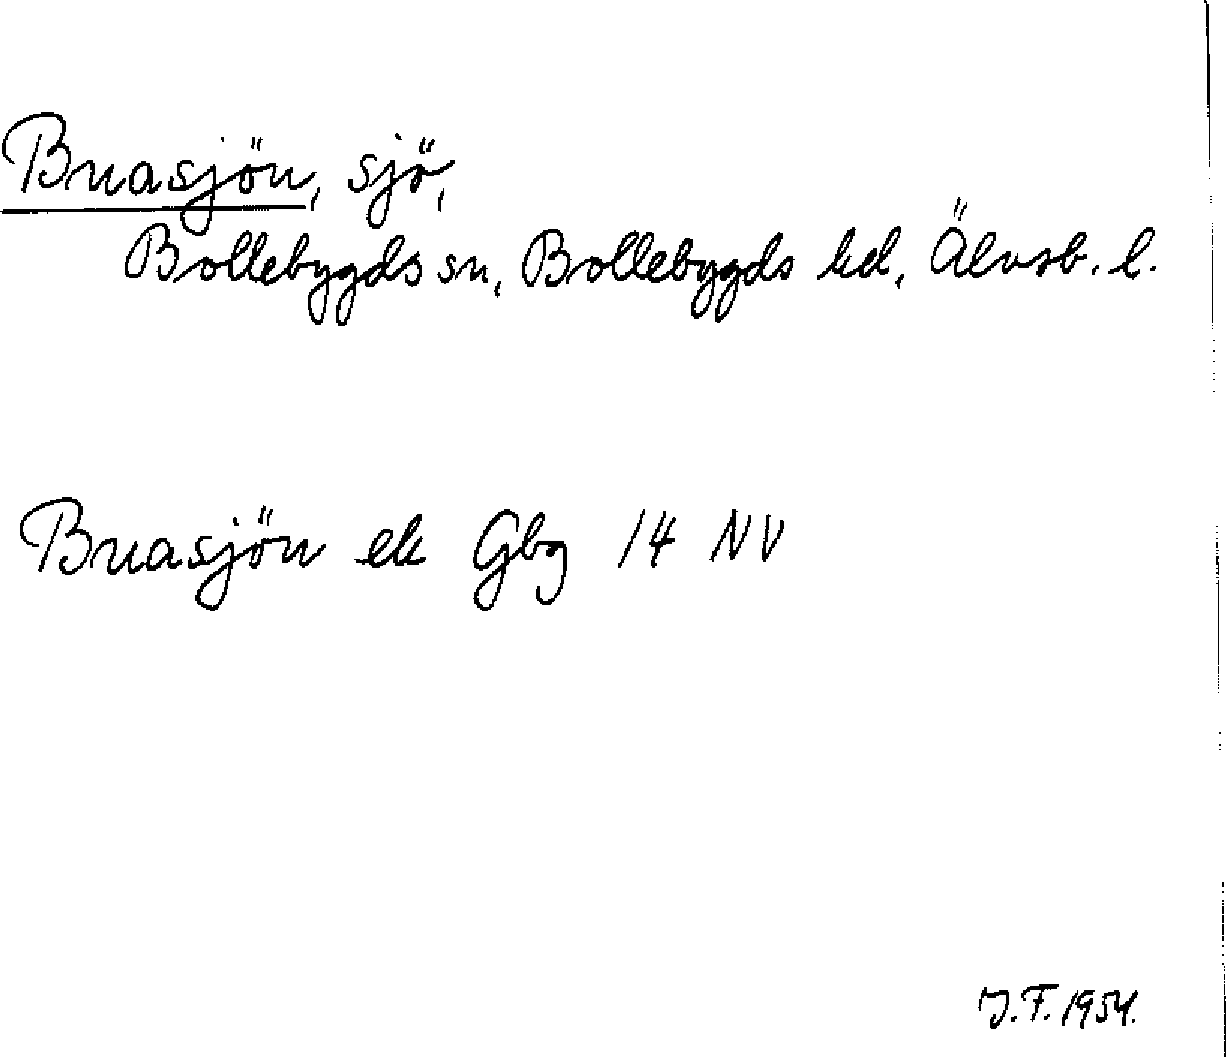 Buasjön, sjö,
Bollebygds sn, Bollebygds hd, Älvsb. l.
Buasjön ek Gbg 14 NV
J.F. 1954.